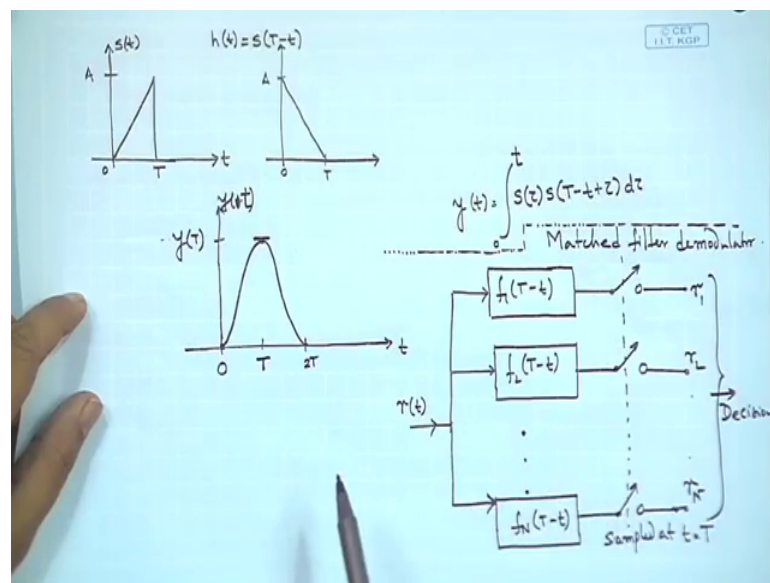 © CET
I.I.T. KGP
s(t)
h(t) = s(T-t)
A
A
0
T
t
0
T
y(t)
y(T)
0
T
2T
t
y(t) = ∫₀ᵗ s(τ) s(T-t+τ) dτ
Matched filter demodulator.
f₁(T-t)
r₁
f₂(T-t)
r₂
r(t)
Decision
f_N(T-t)
r_N
Sampled at t=T